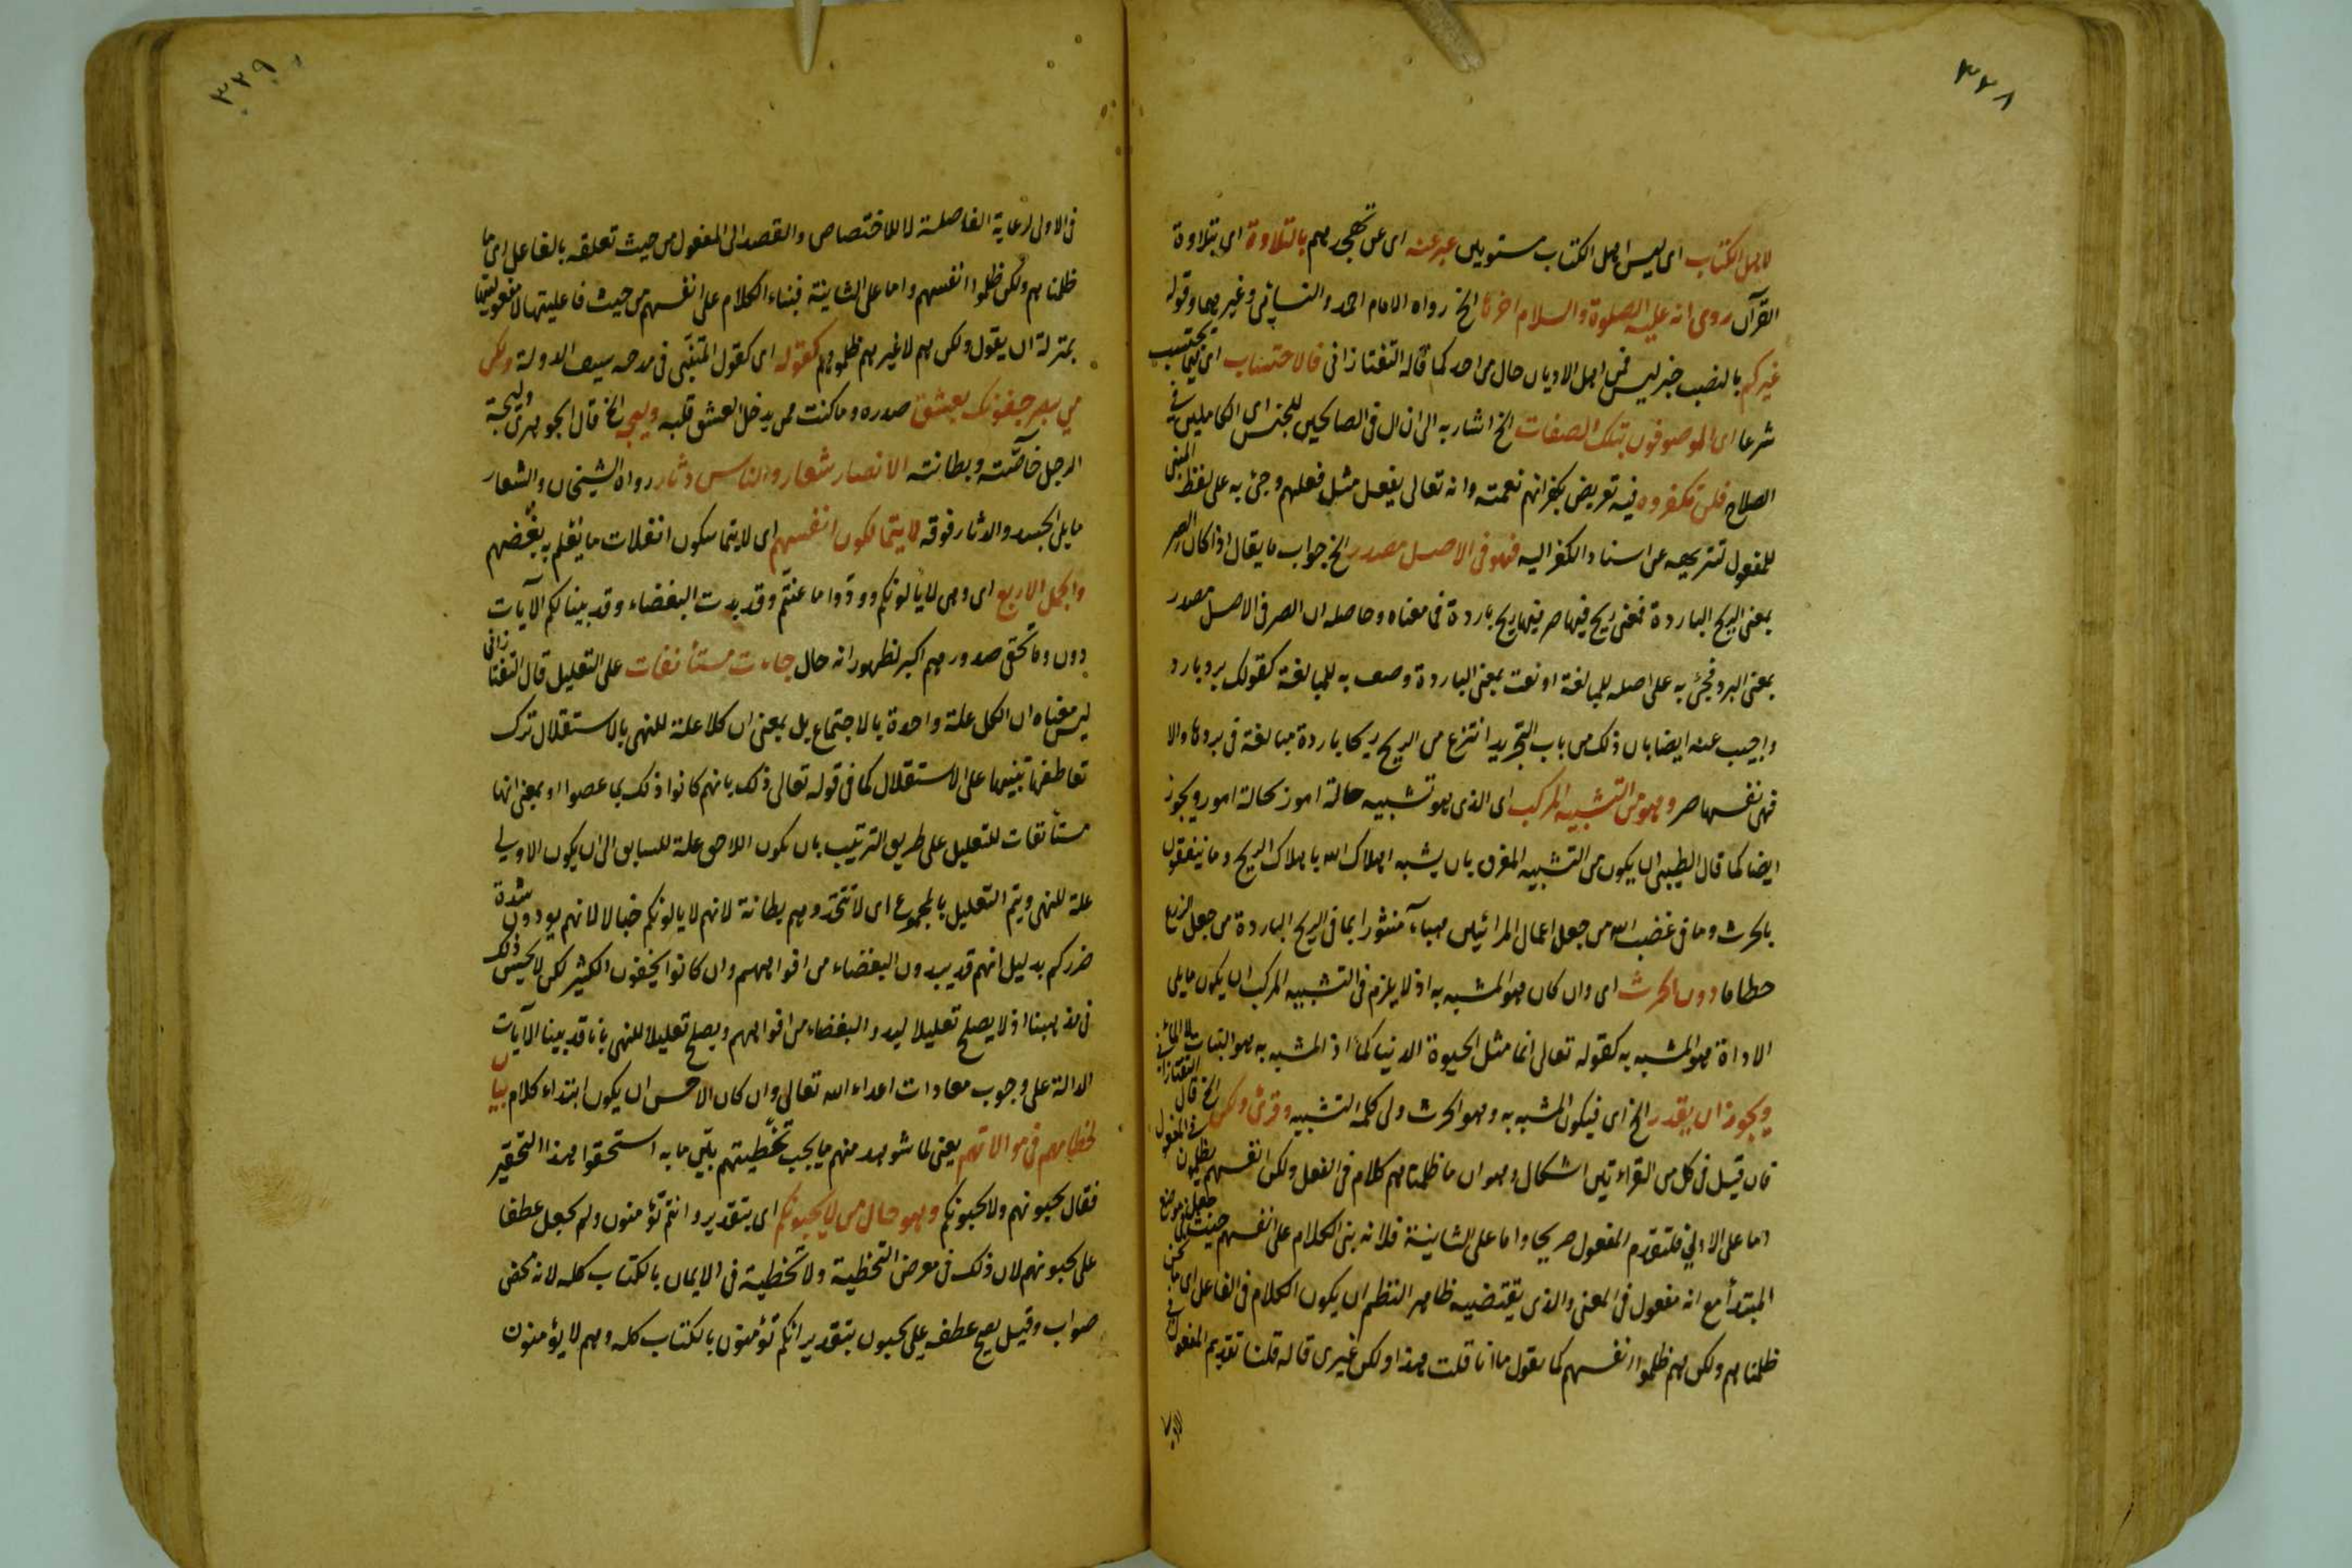 ٣٢٨
لاهل الكتاب اى ليس اهل الكتاب مستويين عبر عنه اى عن تهجدهم بالتلاوة اى بتلاوة
القرآن روى انه عليه الصلوة والسلام اخرها الخ رواه الامام احمد والنسائى وغيرهما وقوله
غيركم بالنصب خبر ليس فمن اهل الاديان حال من احد كما قاله التفتازانى فالاحتساب اى
شرعا اى الموصوفون بتلك الصفات الخ اشار به الى ان ال فى الصالحين للجنس اى الكاملين فى
الصلاح فلن تكفروه فيه تعريض بكفرانهم نعمته وانه تعالى يفعل مثل فعلهم وجئ به على لفظ المبنى
للمفعول لتنزيهه عن اسناد الكفر اليه فهو فى الاصل مصدر الخ جواب ما يقال اذا كان الصر
بمعنى الريح الباردة فمعنى ريح فيها صر فيها ريح باردة فى معناه وحاصله ان الصر فى الاصل مصدر
بمعنى البرد فجئ به على اصله للمبالغة او نعت بمعنى الباردة وصف به للمبالغة كقولك برد بارد
واجيب عنه ايضا بان ذلك من باب التجريد انتزع من الريح ريحا باردة مبالغة فى بردها والا
فهى نفسها صر وهو من التشبيه المركب اى الذى هو تشبيه حالة امور بحالة امور ويجوز
ايضا كما قال الطيبى ان يكون من التشبيه المفرق بان يشبه اهلاك الله باهلاك الريح وما ينفقون
بالحرث وما فى غضب الله من جعل اعمال المرائين هباء منثورا بما فى الريح الباردة من جعل الزرع
حطاما دون الحرث اى وان كان هو المشبه به اذ لا يلزم فى التشبيه المركب ان يكون ما يلى
الاداة هو المشبه به كقوله تعالى انما مثل الحيوة الدنيا كماء اذ المشبه به هو النبات لا الماء
ويجوز ان يقدر الخ اى فيكون المشبه به وهو الحرث ولى كلمة التشبيه وقرئ ولكن الخ قال التفتازانى
فان قيل فى كل من القراءتين اشكال وهو ان ما ظلمناهم كلام فى الفعل ولكن انفسهم يظلمون فى المفعول
اما على الاولى فلتقدم المفعول صريحا واما على الثانية فلانه بنى الكلام على انفسهم حيث جعل فى موضع
المبتدأ مع انه مفعول فى المعنى والذى يقتضيه ظاهر النظم ان يكون الكلام فى الفاعل اى ما نحن
ظلمناهم ولكن هم ظلموا انفسهم كما يقول ما انا قلت هذا ولكن غيرى قاله قلنا تقديم المفعول
٣٢٩
فى الاولى لرعاية الفاصلة لا للاختصاص والقصد الى المفعول من حيث تعلقه بالفاعل اى ما
ظلمناهم ولكن ظلموا انفسهم واما على الثانية فبناء الكلام على انفسهم من حيث فاعليتها لا مفعوليتها
بمنزلة ان يقول ولكن هم لا غيرهم ظلموهم كقوله اى كقول المتنبى فى مدحه سيف الدولة ولكن
من يبصر جفونك يعشق صدره وما كنت ممن يدخل العشق قلبه وليجة الخ قال الجوهرى وليجة
الرجل خاصته وبطانته الانصار شعار والناس دثار رواه الشيخان والشعار
ما يلى الجسد والدثار فوقه لا يتمالكون انفسهم اى لا يتماسكون انفلات ما يعلم به بغضهم
والجمل الاربع اى وهى لا يألونكم وودوا ما عنتم وقد بدت البغضاء وقد بينا لكم الآيات
دون وما تخفى صدورهم اكبر لظهور انه حال جاءت مستأنفات على التعليل قال التفتازانى
ليس معناه ان الكل علة واحدة بالاجتماع بل بمعنى ان كلا علة للنهى بالاستقلال ترك
تعاطفها تنبيها على الاستقلال كما فى قوله تعالى ذلك بانهم كانوا ذلك بما عصوا او بمعنى انها
مستأنفات للتعليل على طريق الترتيب بان يكون اللاحق علة للسابق الى ان يكون الاولى
علة للنهى ويتم التعليل بالمجموع اى لا تتخذوهم بطانة لانهم لا يالونكم خبالا لانهم يودون شدة
ضرركم بدليل انهم قد يبدون البغضاء من افواههم وان كانوا يخفون الكثير لكن لا يحسن ذلك
فى قد بينا اذ لا يصلح تعليلا لبدو البغضاء من افواههم ويصلح تعليلا للنهى بانا قد بينا الآيات
الدالة على وجوب معادات اعداء الله تعالى وان كان الاحسن ان يكون ابتداء كلام بيان
لخطاهم فى موالاتهم يعنى لما شوهد منهم ما يجب تخطيتهم بين ما به استحقوا هذا التحقير
فقال يحبونهم ولا يحبونكم وهو حال من لا يحبونكم اى بتقدير وانتم تؤمنون ولم يجعل عطفا
على يحبونهم لان ذلك فى معرض التخطية ولا تخطية فى الايمان بالكتاب كله لانه محض
صواب وقيل يصح عطفه على يحبون بتقدير انكم تؤمنون بالكتاب كله وهم لا يؤمنون